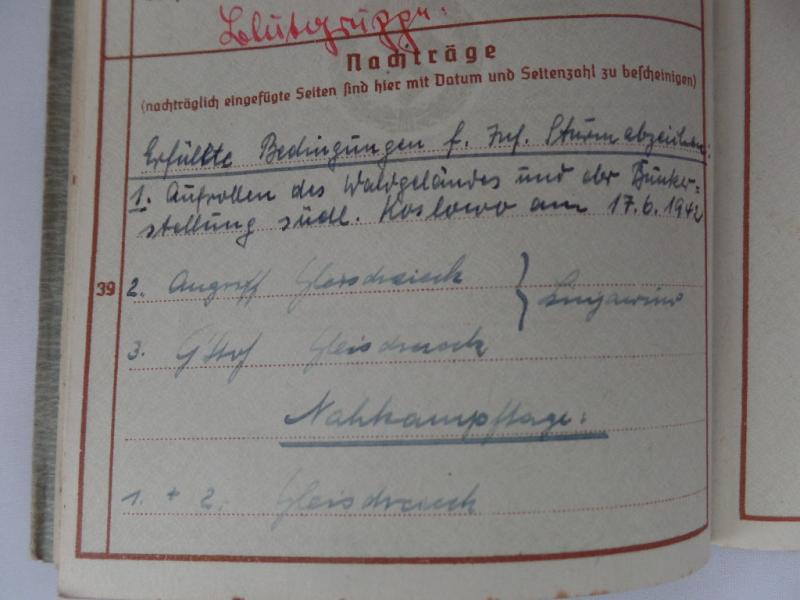 Blutgruppe.
Nachträge
(nachträglich eingefügte Seiten sind hier mit Datum und Seitenzahl zu bescheinigen)
Erfüllte Bedingungen f. Inf. Sturmabzeichen:
1. Aufrollen des Waldgeländes und der Bunker=
stellung südl. Koslowo am 17.6.1942
39 2. Angriff Gleisdreieck
3. Gleisdreieck
Nahkampftage:
1. + 2. Gleisdreieck